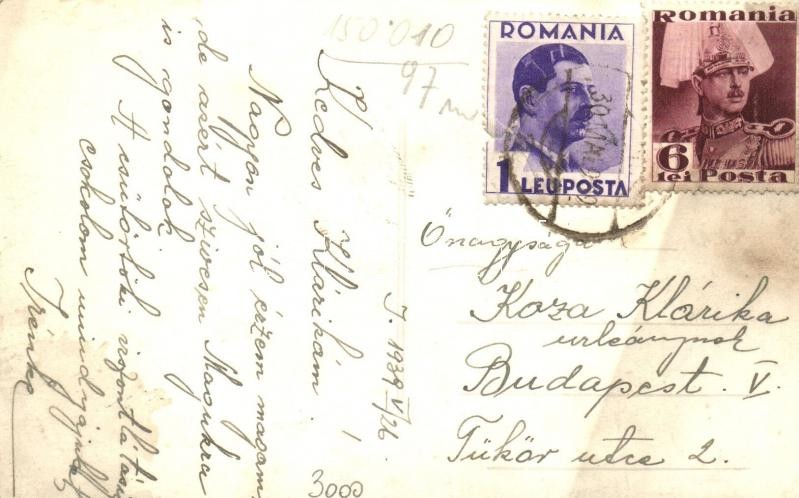 150.010
97
ROMANIA
1 LEU POSTA
Romania
6
lei Posta
Kedves Klárikám!
Nagyon jól érzem magam
de azért szivesen Magukra
is gondolok
A csütörtöki viszontlátásig
csókolom mindnyájukat
Irénke
J. 1939 V/26
Őnagysága
Koza Klárika
urleánynak
Budapest. V.
Tükör utca 2.
3000